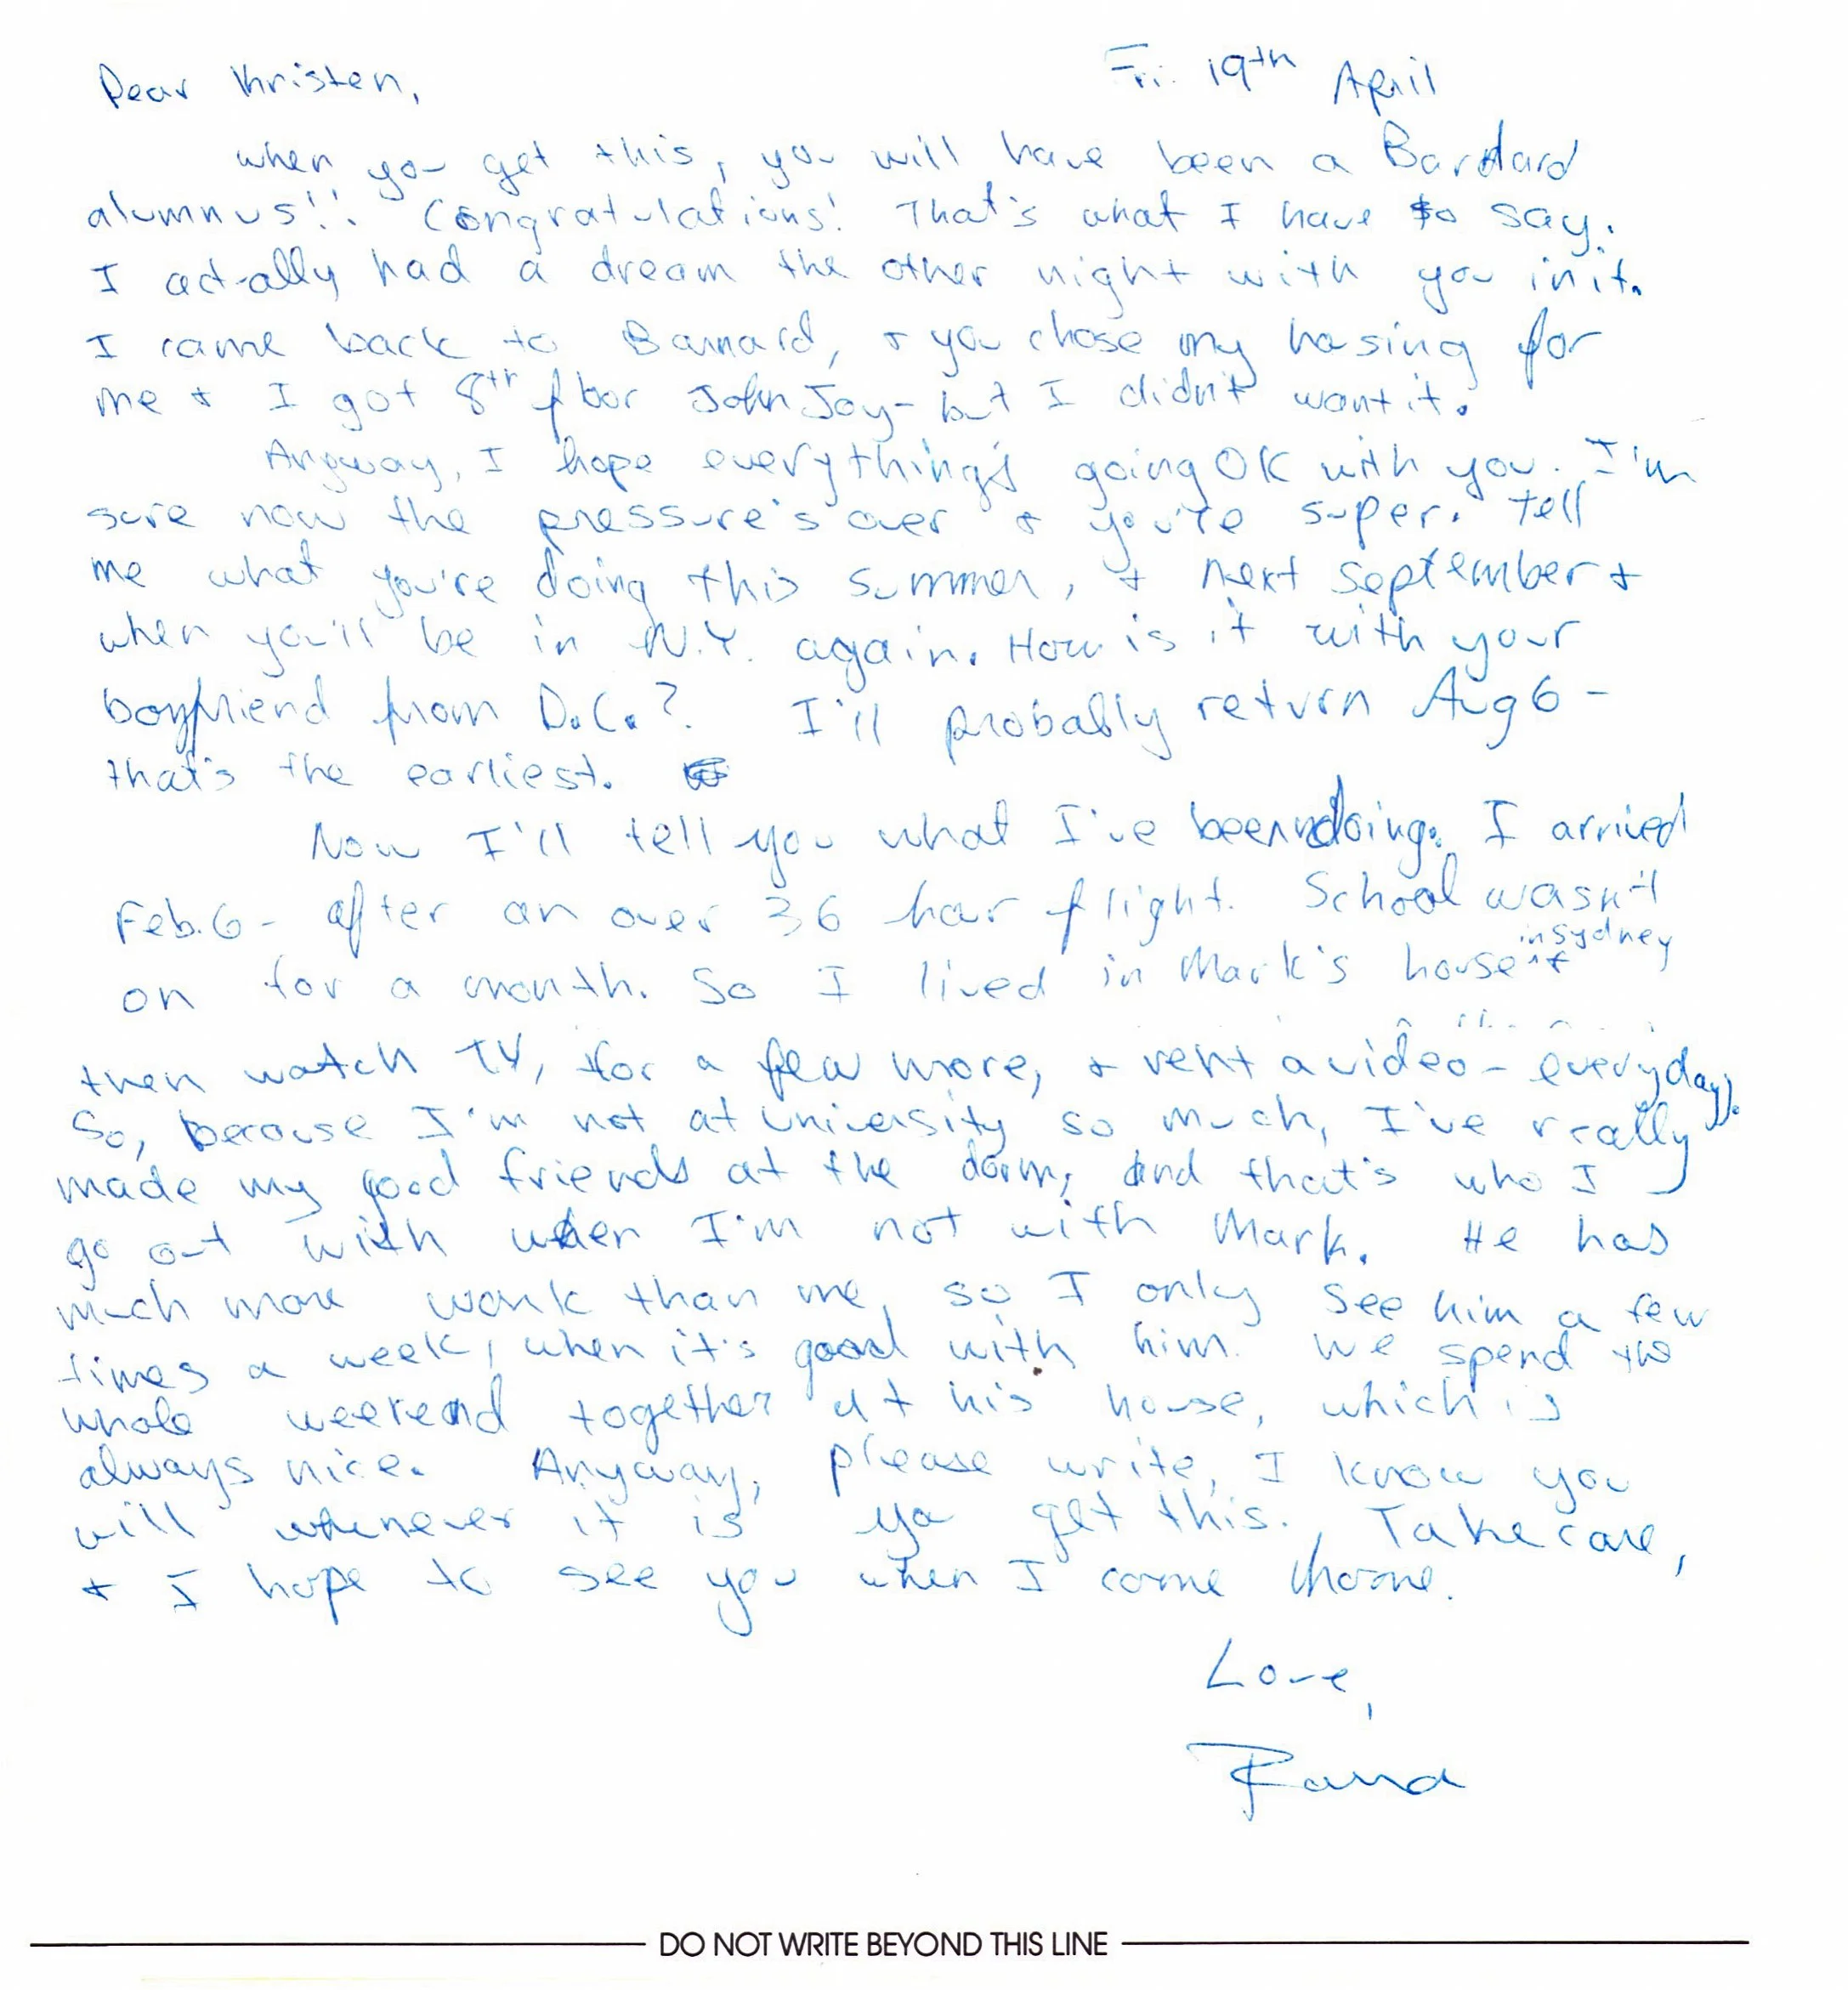 Fri. 19th April
Dear Kristen,
when you get this, you will have been a Barnard
alumnus!! Congratulations! That's what I have to say.
I actually had a dream the other night with you in it.
I came back to Barnard, + you chose my housing for
me + I got 8th floor John Jay - but I didn't want it.
Anyway, I hope everything's going OK with you. I'm
sure now the pressure's over + you're super. Tell
me what you're doing this summer, + next September +
when you'll be in N.Y. again. How is it with your
boyfriend from D.C.? I'll probably return Aug 6 -
that's the earliest.
Now I'll tell you what I've been doing. I arrived
Feb. 6 - after an over 36 hour flight. School wasn't
on for a month. So I lived in Mark's house in Sydney
then watch TV, for a few more, + rent a video - everyday).
So, because I'm not at University so much, I've really
made my good friends at the dorm, and that's who I
go out with when I'm not with Mark. He has
much more work than me, so I only see him a few
times a week, when it's good with him. We spend the
whole weekend together at his house, which is
always nice. Anyway, please write, I know you
will whenever it is you get this. Take care,
+ I hope to see you when I come home.
Love,
DO NOT WRITE BEYOND THIS LINE